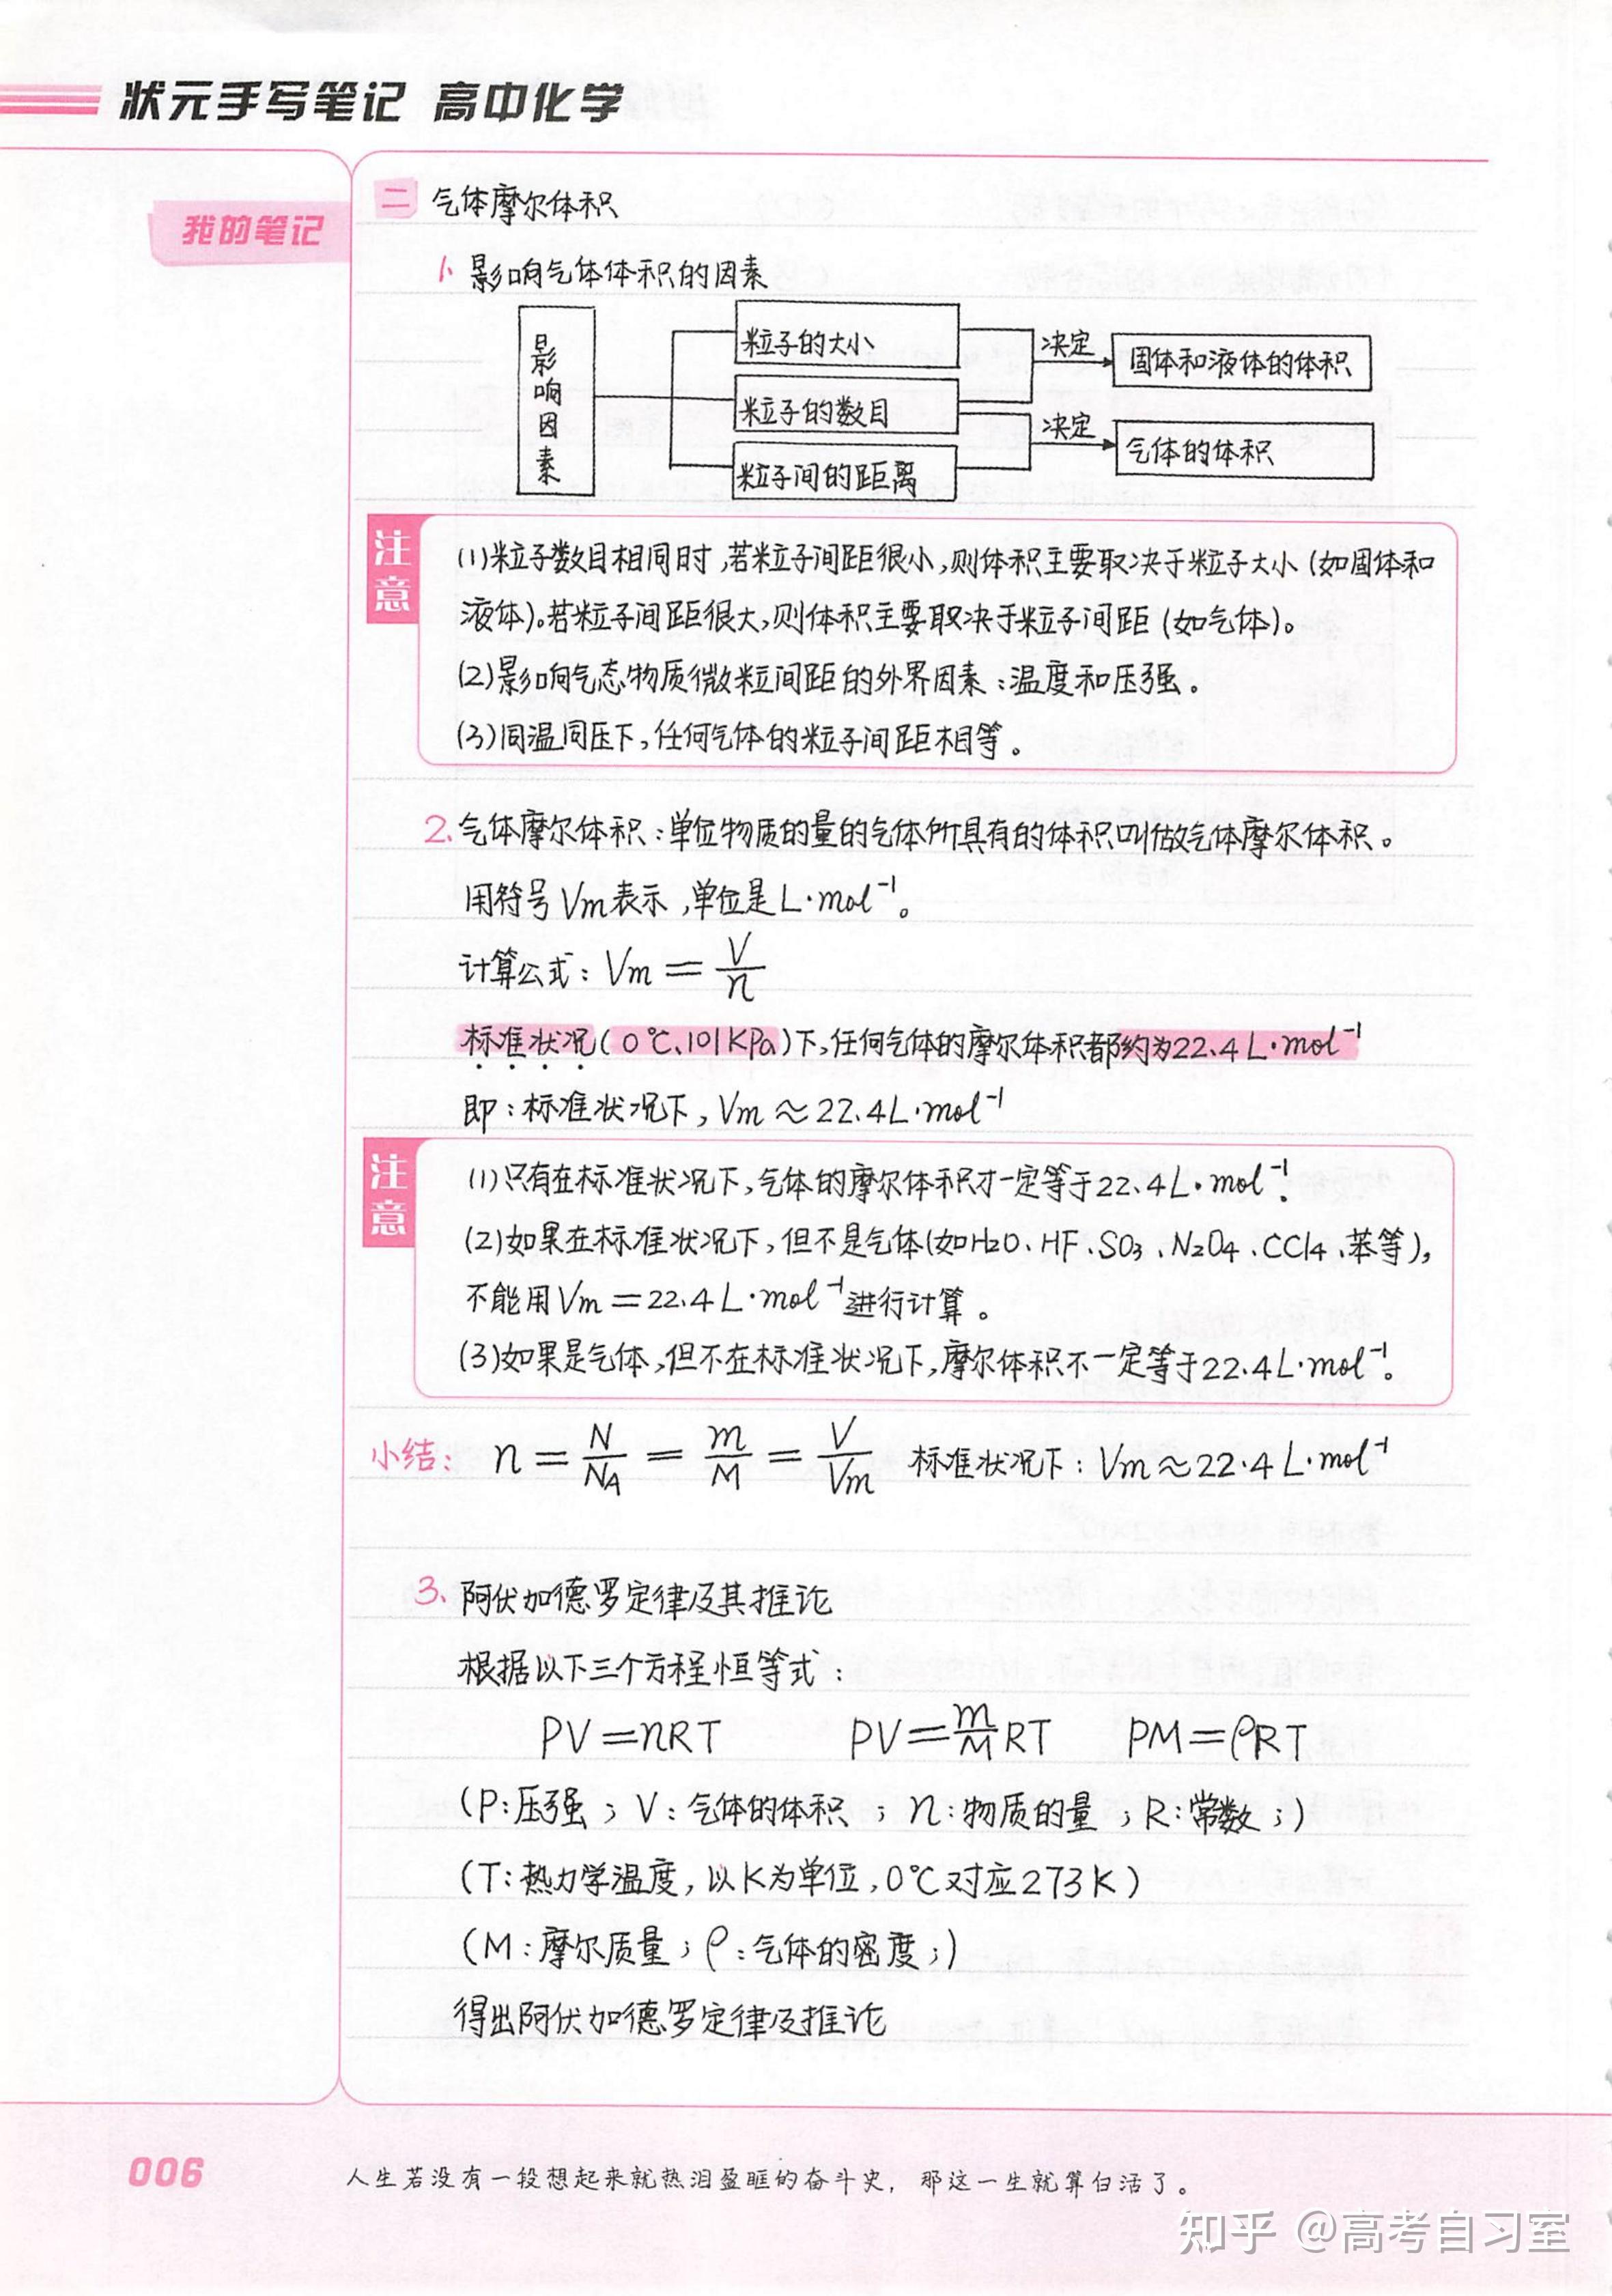 状元手写笔记 高中化学
我的笔记
二 气体摩尔体积
1、影响气体体积的因素
影响因素
粒子的大小
粒子的数目
粒子间的距离
决定
固体和液体的体积
决定
气体的体积
注意
(1)粒子数目相同时,若粒子间距很小,则体积主要取决于粒子大小(如固体和
液体)。若粒子间距很大,则体积主要取决于粒子间距(如气体)。
(2)影响气态物质微粒间距的外界因素:温度和压强。
(3)同温同压下,任何气体的粒子间距相等。
2、气体摩尔体积:单位物质的量的气体所具有的体积叫做气体摩尔体积。
用符号Vm表示,单位是L·mol⁻¹。
计算公式:Vm=V/n
标准状况(0℃、101KPa)下,任何气体的摩尔体积都约为22.4L·mol⁻¹
即:标准状况下,Vm≈22.4L·mol⁻¹
注意
(1)只有在标准状况下,气体的摩尔体积才一定等于22.4L·mol⁻¹.
(2)如果在标准状况下,但不是气体(如H2O、HF、SO3、N2O4、CCl4、苯等),
不能用Vm=22.4L·mol⁻¹进行计算。
(3)如果是气体,但不在标准状况下,摩尔体积不一定等于22.4L·mol⁻¹。
小结: n=N/NA=m/M=V/Vm 标准状况下:Vm≈22.4L·mol⁻¹
3、阿伏加德罗定律及其推论
根据以下三个方程恒等式:
PV=nRT PV=m/M RT PM=ρRT
(P:压强;V:气体的体积;n:物质的量;R:常数;)
(T:热力学温度,以K为单位,0℃对应273K)
(M:摩尔质量;ρ:气体的密度;)
得出阿伏加德罗定律及推论
006
人生若没有一段想起来就热泪盈眶的奋斗史,那这一生就算白活了。
知乎 @高考自习室